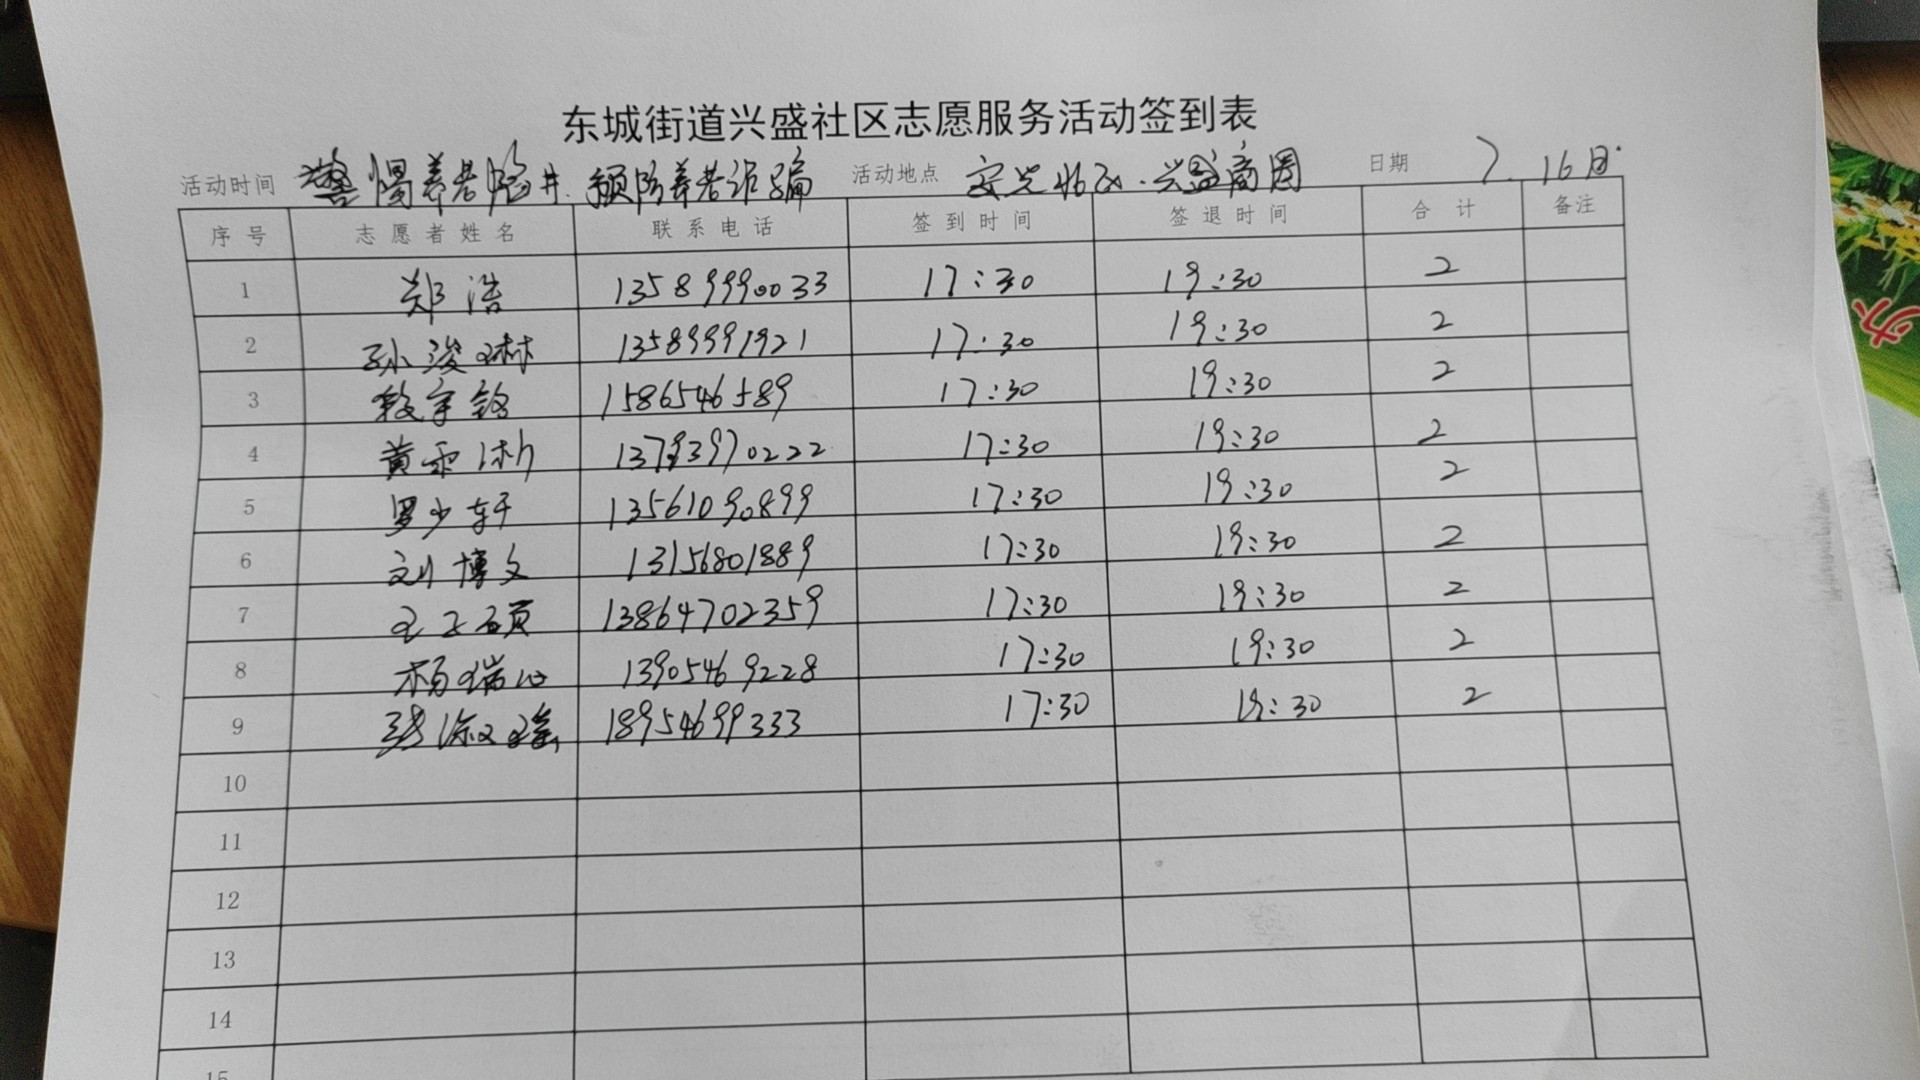 东城街道兴盛社区志愿服务活动签到表
活动时间 警惕养老陷井.预防养老诈骗 活动地点 安兴北区.兴盛商圈 日期 7.16日.
序号 志愿者姓名 联系电话 签到时间 签退时间 合计 备注
1 郑浩 13589990033 17:30 19:30 2
2 孙浚琳 13589991921 17:30 19:30 2
3 17:30 19:30 2
4 黄 17:30 19:30 2
5 罗少轩 13561090899 17:30 19:30 2
6 刘博文 13156801889 17:30 19:30 2
7 硕 13864702359 17:30 19:30 2
8 杨瑞 13905469228 17:30 19:30 2
9 瑶 18954699333 17:30 19:30 2
10
11
12
13
14
15